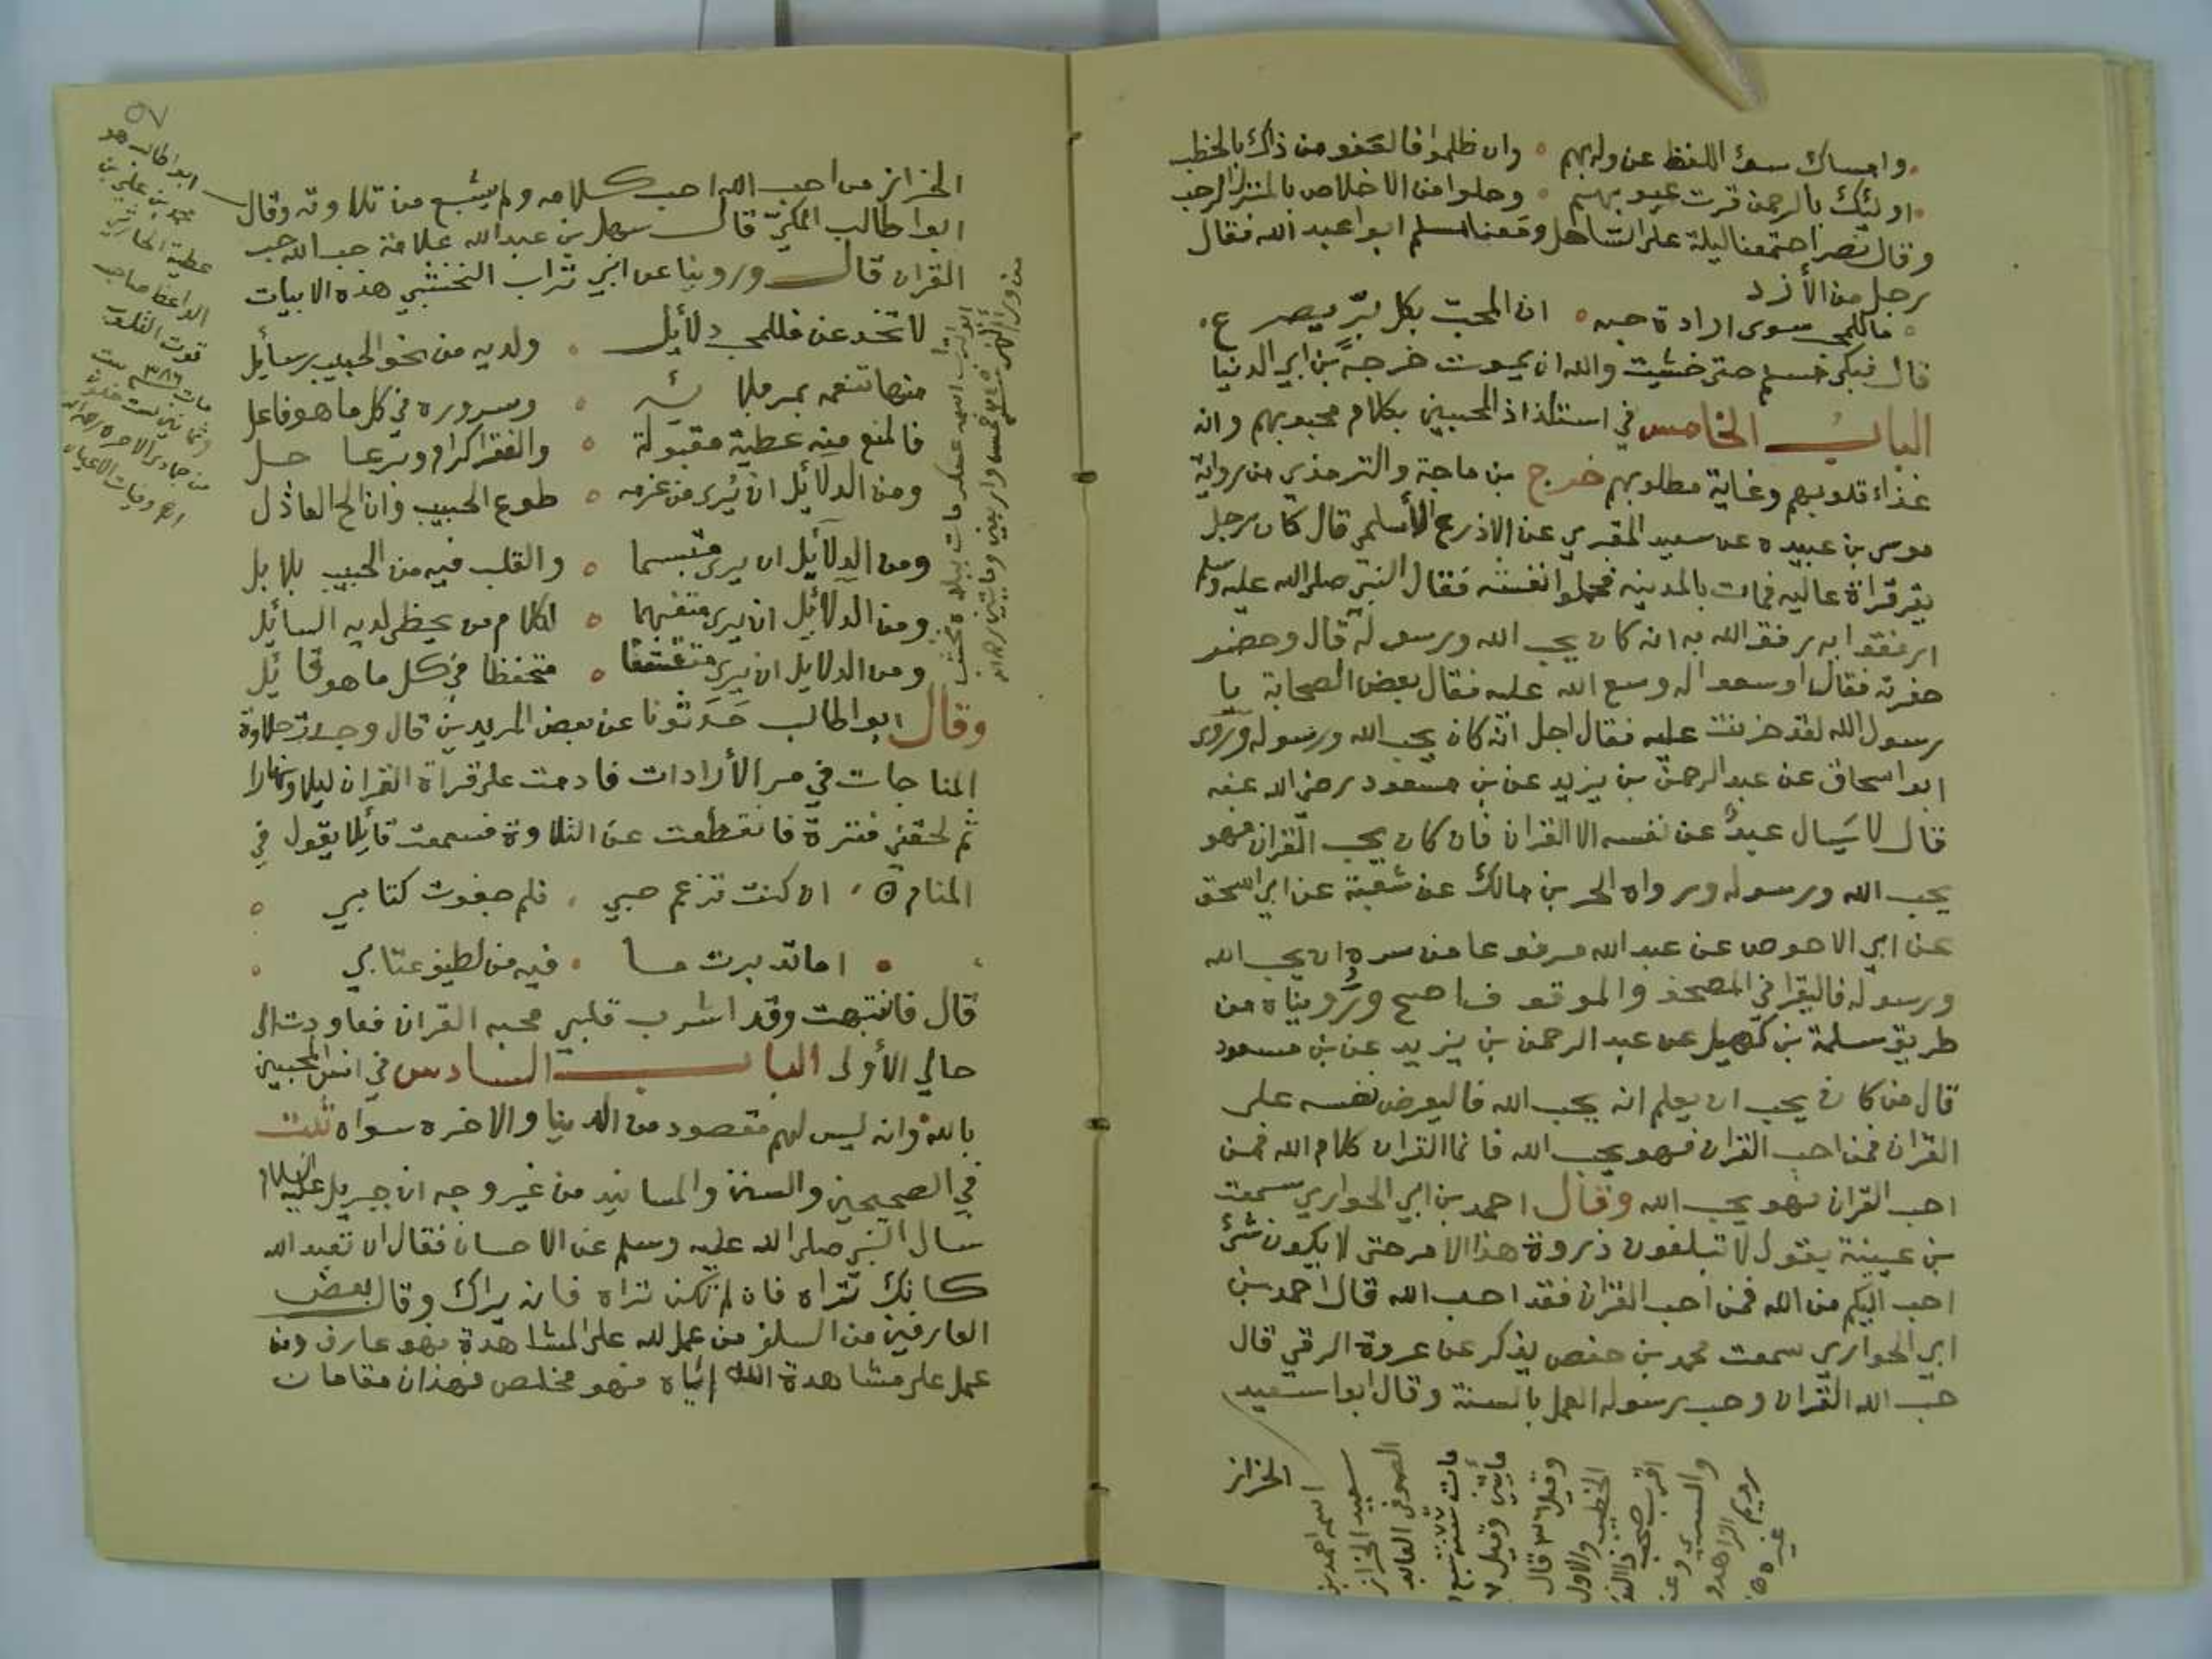 وامساك سوء اللفظ عن ولديهم ٥ وان ظلموا فالعفو من ذاك بالخطب
اولئك بالرحمن قرت عيونهم ٥ وحلوا من الاخلاص بالمنزل الرحب
وقال نصر اجتمعنا ليلة على الساحل ومعنا مسلم ابوا عبد الله فقال
رجل من الأزد
ما للمحب سوى ارادة حبه ٥ ان المحب بكل بر يصرع
قال فبكى مسلم حتى خشيت والله ان يموت خرجه بن ابي الدنيا
الباب الخامس في استلذاذ المحبين بكلام محبوبهم وانه
غذاء قلوبهم وغاية مطلوبهم خرج بن ماجة والترمذي من رواية
موسى بن عبيده عن سعيد المقبري عن الاذرع الأسلمي قال كان رجل
يقر قراة عاليه فمات بالمدينه فحملوا نعشه فقال النبي صلى الله عليه وسلم
ارفقوا به رفق الله به انه كان يحب الله ورسوله قال وحضر
حفرته فقال اوسعوا له وسع الله عليه فقال بعض الصحابة يا
رسول الله لقد حزنت عليه فقال اجل انه كان يحب الله ورسوله وروى
ابو اسحاق عن عبد الرحمن بن يزيد عن بن مسعود رضي الله عنه
قال لا يسال عبد عن نفسه الا القران فان كان يحب القران فهو
يحب الله ورسوله ورواه الحر بن مالك عن شعبة عن ابي اسحق
عن ابي الاحوص عن عبد الله مرفوعا من سره ان يحب الله
ورسوله فاليقرا في المصحف والموقوف اصح ورويناه من
طريق سلمة بن كهيل عن عبد الرحمن بن يزيد عن بن مسعود
قال من كان يحب ان يعلم انه يحب الله فاليعرض نفسه على
القران فمن احب القران فهو يحب الله فانما القران كلام الله فمن
احب القران فهو يحب الله وقال احمد بن ابي الحواري سمعت
بن عيينة يقول لا تبلغون ذروة هذا الامر حتى لا يكون شئ
احب اليكم من الله فمن احب القران فقد احب الله قال احمد بن
ابي الحواري سمعت محمد بن حفص يذكر عن عروة الرقي قال
حب الله القران وحب رسوله العمل بالسنة وقال ابوا سعيد
الخزاز
اسمه احمد بن
سعيد الخزاز
الصوفي العابد
مات سنه ٢٧٧ سبع
مأتين وقيل ٧
وقيل قال
الخطيب والاول
اقرب صحب ذا النون
والسري وغ
رويم الزاهد و
غيره
الخزاز من احب الله احب كلامه ولم يشبع من تلاوته وقال
ابوا طالب المكي قال سهل بن عبد الله علامة حب الله حب
القران قال وروينا عن ابي تراب النخشبي هذه الابيات
لا تخدعن فللمحب دلأيل ٥ ولديه من نحو الحبيب رسأيل
منها تنعمه بمر بلائه ٥ وسروره في كل ما هو فاعل
فالمنع منه عطية مقبولة ٥ والفقر اكرام وبر عاجل
ومن الدلأيل ان يرى من عزمه ٥ طوع الحبيب وان الح العاذل
ومن الدلأيل ان يرى متبسما ٥ والقلب فيه من الحبيب بلابل
ومن الدلأيل ان يرى متفهما ٥ لكلام من يحظى لديه السأيل
ومن الدلايل ان يرى متقشفا ٥ متحفظا في كل ما هو قأيل
وقال ابوا طالب حدثونا عن بعض المريدين قال وجدت حلاوة
المناجات في سر الأرادات فادمت على قراة القران ليلا ونهارا
ثم لحقني فترة فانقطعت عن التلاوة فسمعت قأيلا يقول في
المنام ٥ ان كنت تزعم حبي ٥ فلم جفوت كتابي ٥
٥ اما تدبرت ما ٥ فيه من لطيف عتابي ٥
قال فانتبهت وقد اشرب قلبي محبه القران فعاودت الى
حالي الأولى الباب السادس في انس المحبين
بالله وانه ليس لهم مقصود من الدنيا والاخره سواه ثبت
في الصحيحين والسنن والمسانيد من غير وجه ان جبريل عليه السلام
سال النبي صلى الله عليه وسلم عن الاحسان فقال ان تعبد الله
كانك تراه فان لم تكن تراه فانه يراك وقال بعض
العارفين من السلف من عمل لله على المشاهدة فهو عارف ومن
عمل على مشاهدة الله إياه فهو مخلص فهذان مقامان
٥٧
ابوا طالب هو
محمد بن علي بن
عطية الحارثي
الواعظ صاحب
قوت القلوب
مات سنه ٣٨٦ ست
وثمانين
من جمادى الاخره
اهـ وفيات الاعيان
ابو تراب اسمه عسكر مات ببادية
خمس واربعين ومايتين